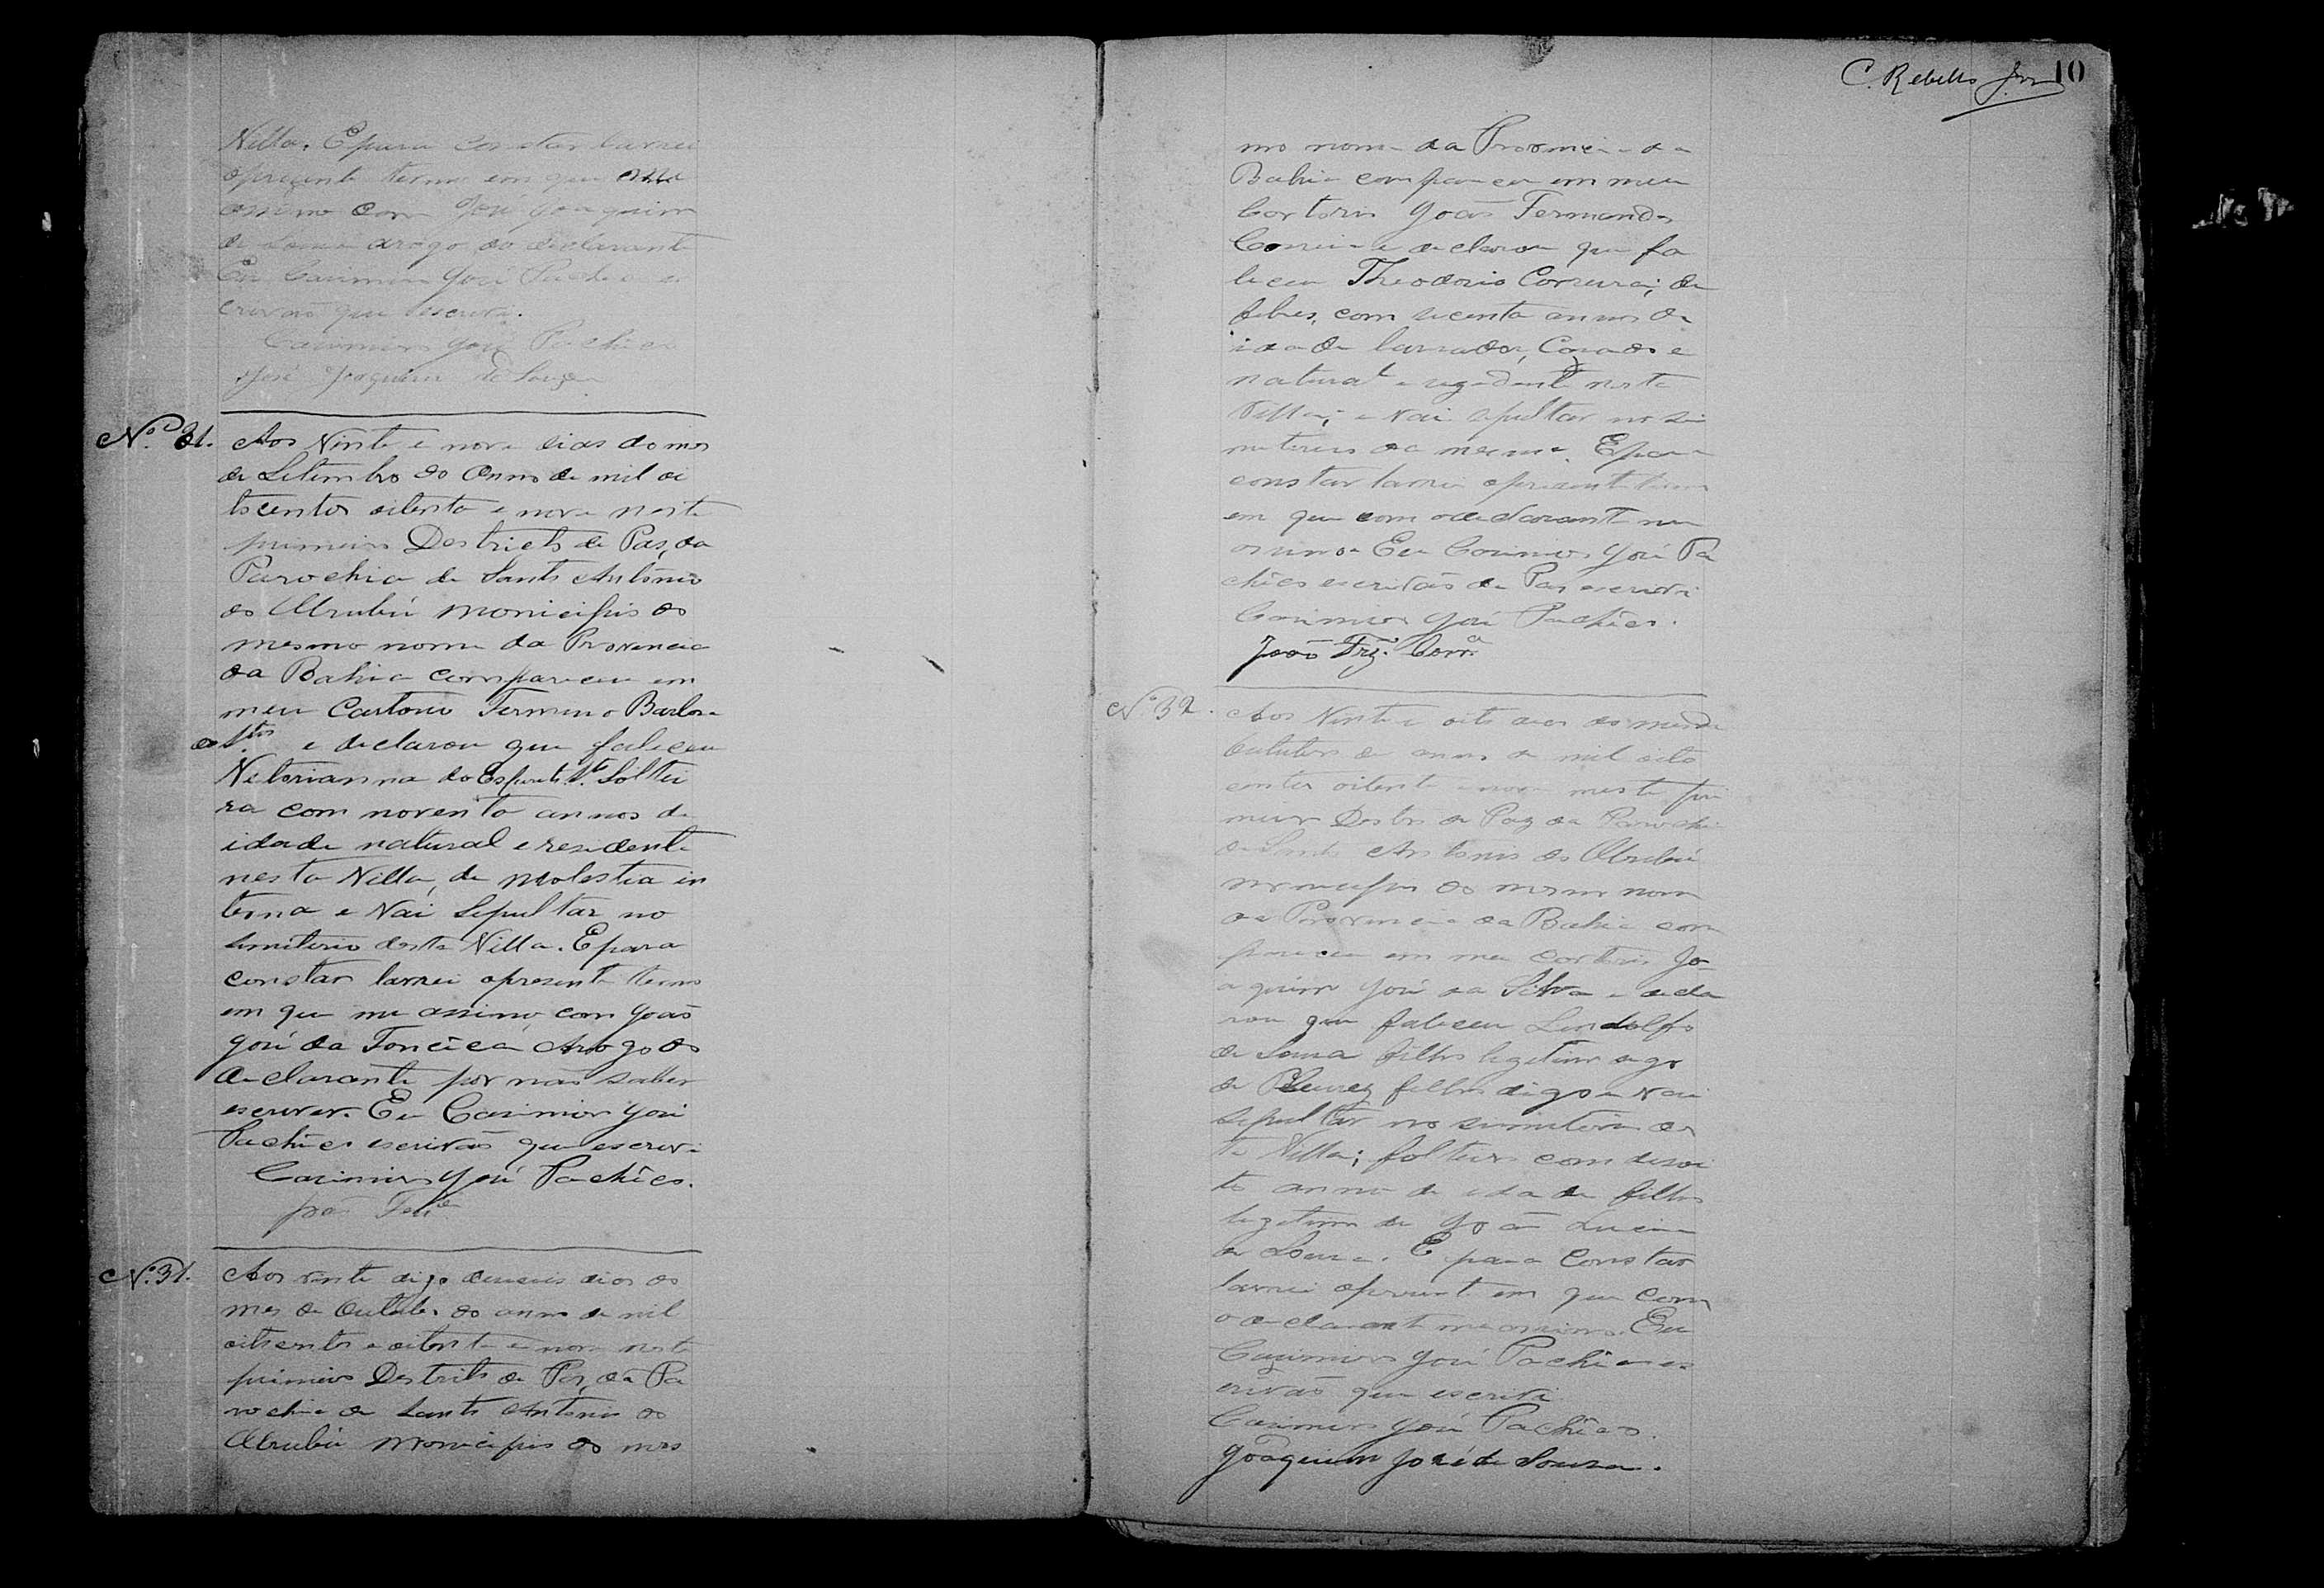 Villa. E para constar lavrei
o presente termo em que me
assino com José Joaquim
de Souza arogo do declarante
Eu Casimiro José Pachêco es
crivão que escrevi.
Casimiro José Pachêco
José Joaquim de Souza
Nº 31. Aos Vinte e nove dias do mes
de Setembro do Anno de mil oi
tocentos oitenta e nove neste
primeiro Destricto de Pas, da
Parochia de Santo Antônio
do Urubú Monicipio do
mesmo nome da Provencia
da Bahia compareceu em
meu Cartorio Fermino Barbosa
dos Stos e declarou que faleceu
Vetorianna do Esperito Sto Soltei
ra com noventa annos de
idade natural e resedente
nesta Villa, de molestia in
terna e Vai Sepultar no
simiterio desta Villa. E para
constar lavrei o presente termo
em que me assino, com João
José da Fonceca Arogo do
declarante por não saber
escrever. Eu Casimiro José
Pachêco escrivão que escrevi
Casimiro José Pachêco.
Nº 31. Aos vinte digo deseseis dias do
mes de Outubro do anno de mil
oitosentos e oitenta e nove neste
primeiro Destrito de Pas, da Pa
rochia de Santo Antonio do
Urubú Monicipio do mes
C. Rebello Jor 10
mo nome da Provincia da
Bahia compareceu em meu
Cartorio João Fernandes
Correia e declarou que fa
leceu Theodorio Correia; de
febres, com secenta annos de
idade lavrador, Casado e
natural e resedente nesta
Villa; e vai sepultar no si
miterio da mesma. E para
constar lavrei o presente termo
em que com o declarante me
assino Eu Casimiro José Pa
chêco escrivão de Pas escrevi
Casimiro José Pachêco.
João Frz. Corra
Nº 32. Aos Vinte e oito dias do mes de
Outubro do anno de mil oito
centos oitenta e nove neste pri
meiro Destro de Paz da Parochia
de Santo Antonio do Urubú
monicipio do mesmo nome
da Provencia da Bahia com
pareceu em meu cartorio Jo-
aquim José da Silva e decla
rou que faleceu Lindolfo
de Sousa filho legetimo digo
de filho digo e Vai
sepultar no simiterio des
ta Villa; solteiro com desoi
to anno de idade filho
legetimo de João
de Souza. E para constar
lavrei o presente em que com
o declarante me assino. Eu
Casimiro José Pachêco es
crivão que escrevi
Casimiro José Pachêco.
Joaquim José de Souza.